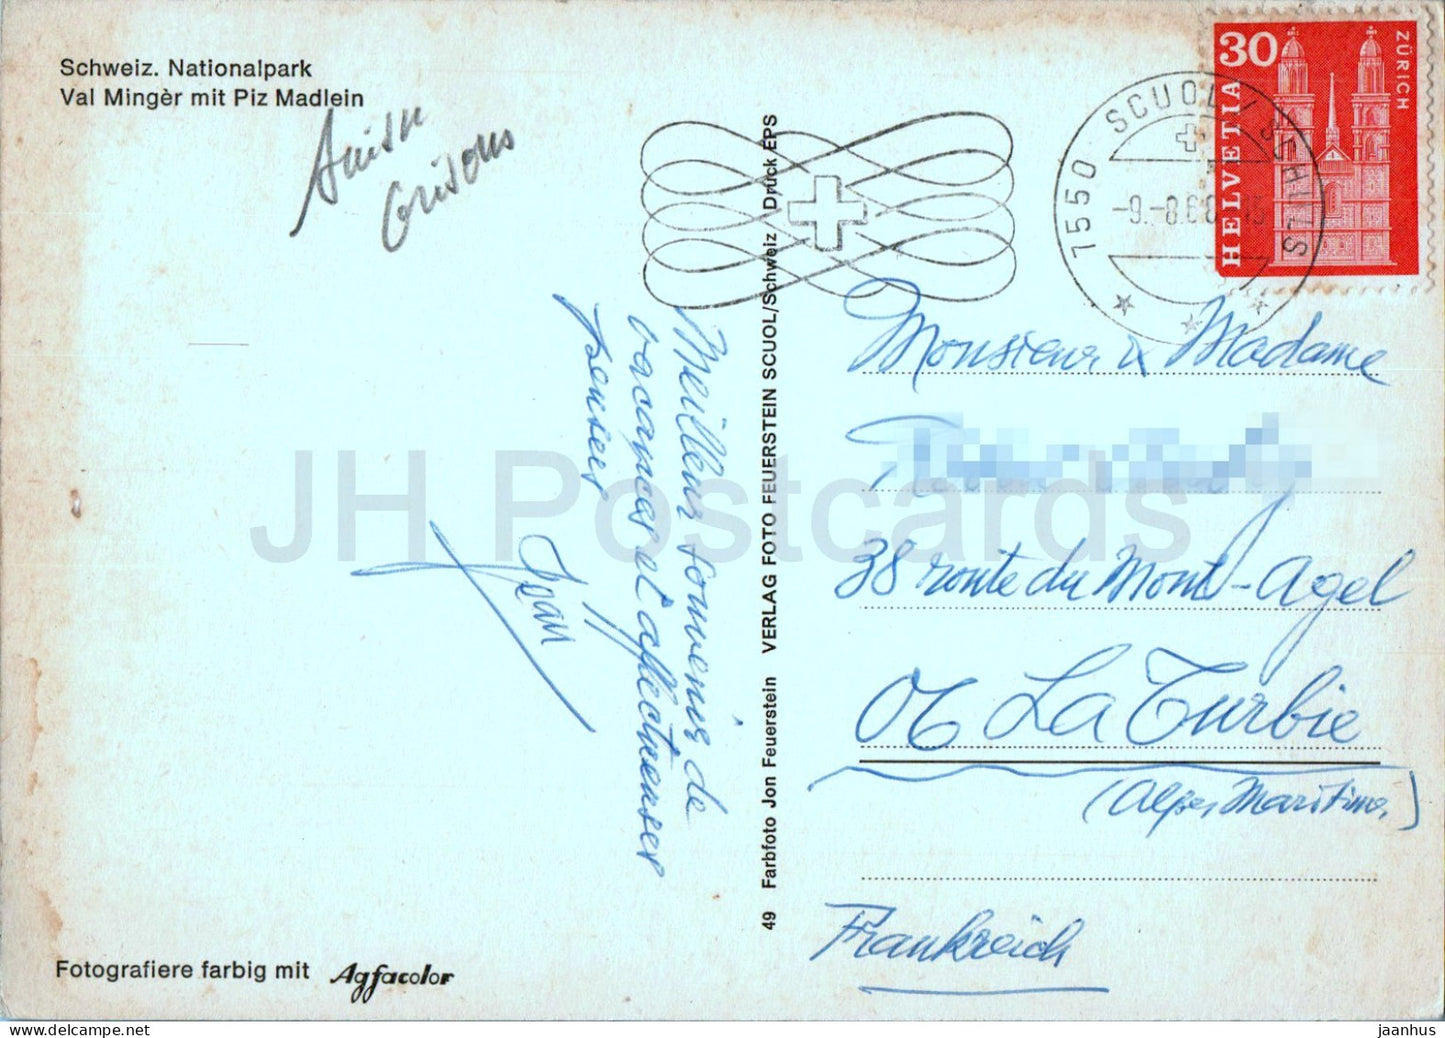 Schweiz. Nationalpark
Val Mingèr mit Piz Madlein
Grisons
30
HELVETIA
ZÜRICH
7550 SCUOL / SCHULS
-9.-8.68
Meilleur souvenir de
vacances et affectueuses
pensées
49 Farbfoto Jon Feuerstein VERLAG FOTO FEUERSTEIN SCUOL/Schweiz Druck EPS
Monsieur & Madame
38 route du Mont-Agel
06 La Turbie
(Alpes Maritimes)
Frankreich
Fotografiere farbig mit Agfacolor
JH Postcards
hip-post.com
jaanhus